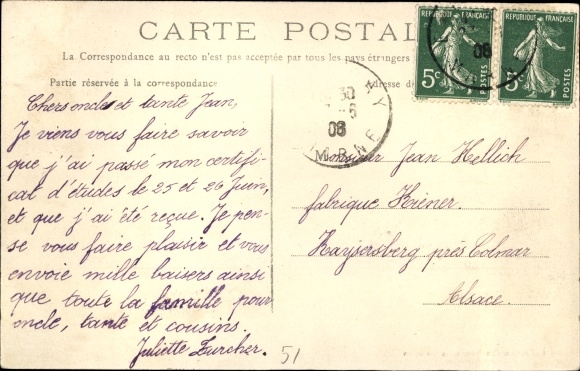 CARTE POSTALE
La Correspondance au recto n'est pas acceptée par tous les pays étrangers
Partie réservée à la correspondance
Adresse de
Chers oncle et tante Jean,
Je viens vous faire savoir
que j'ai passé mon certifi-
cat d'études le 25 et 26 Juin,
et que j'ai été reçue. Je pen-
se vous faire plaisir et vous
envoie mille baisers ainsi
que toute la famille pour
oncle, tante et cousins.
Juliette Zurcher.
51
Monsieur Jean Hellich
fabrique Kiener
Kaysersberg près Colmar
Alsace.
REPUBLIQUE FRANÇAISE
5c
POSTES
REPUBLIQUE FRANÇAISE
5c
POSTES
08
30
08
MARNE